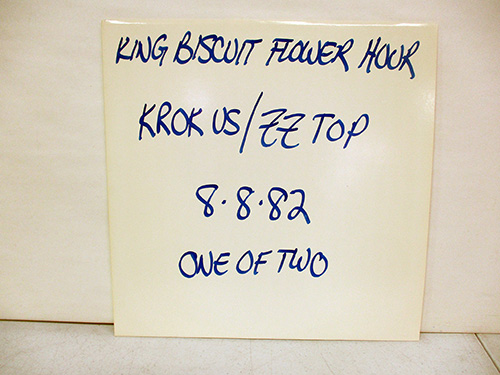 KING BISCUIT FLOWER HOUR
KROKUS/ZZ TOP
8·8·82
ONE OF TWO